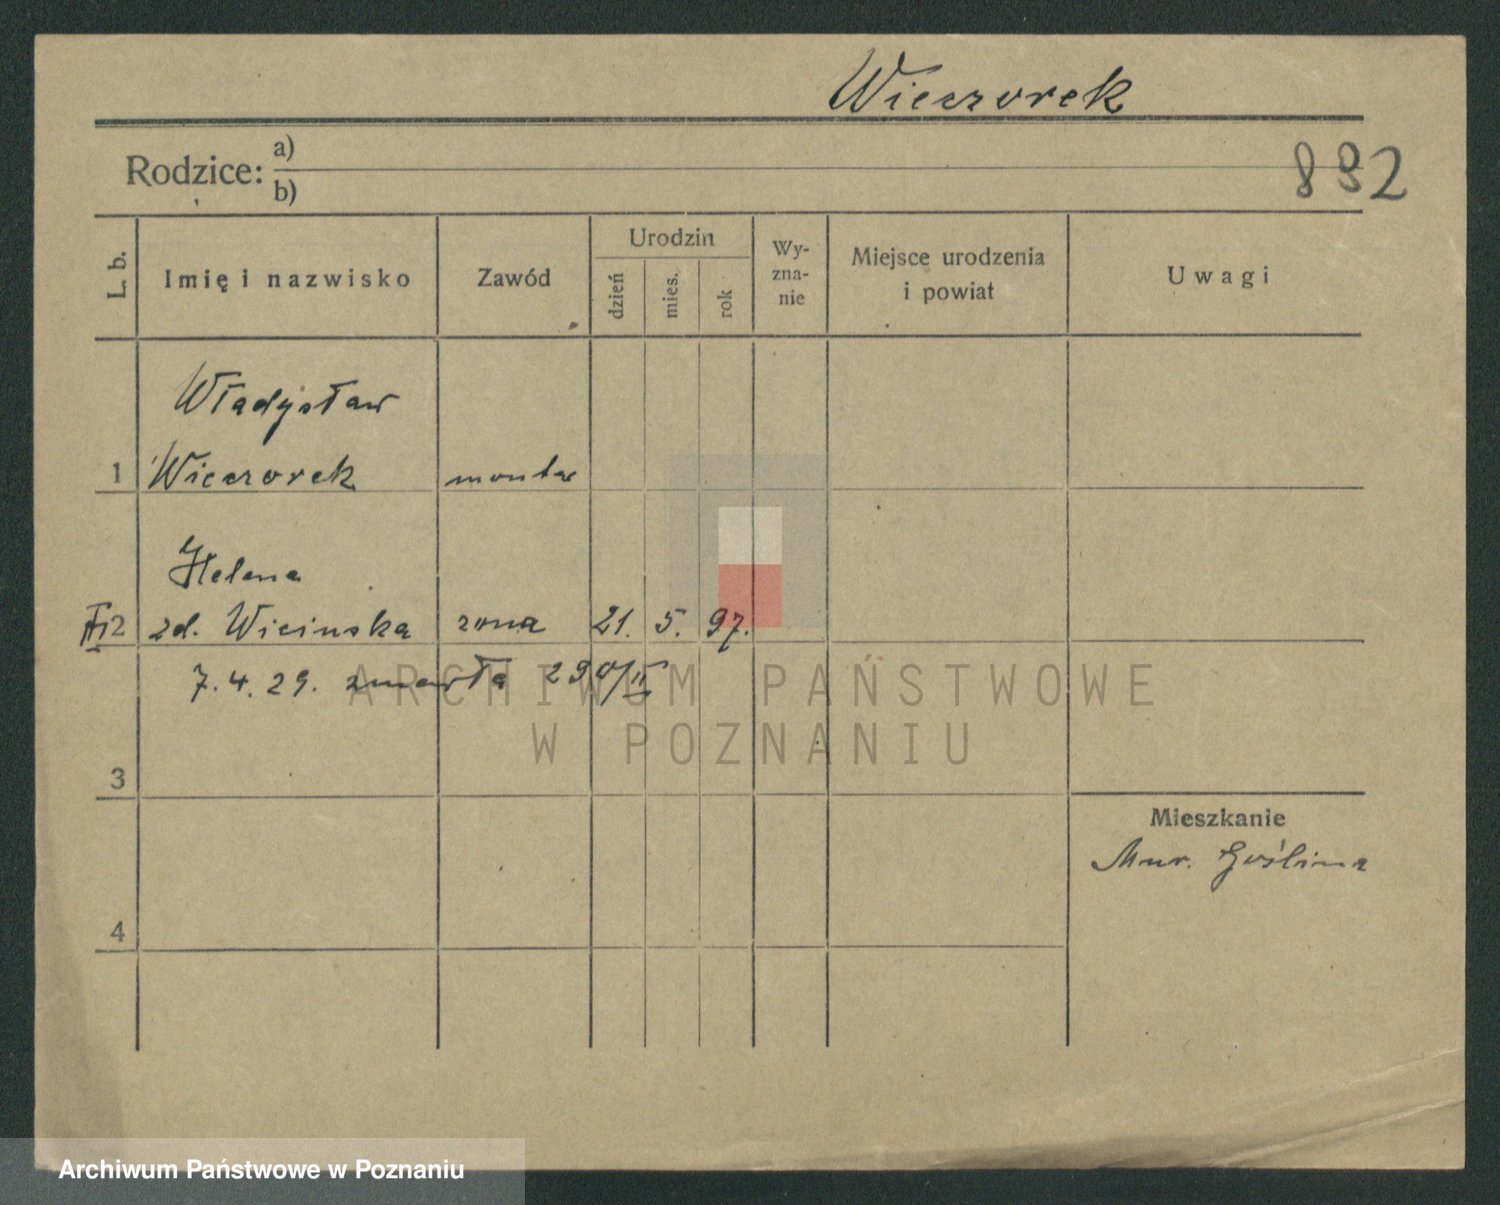 Wieczorek
Rodzice: a)
b)
892
L. b.
Imię i nazwisko
Zawód
Urodzin
dzień
mies.
rok
Wy-
zna-
nie
Miejsce urodzenia
i powiat
Uwagi
Władysław
1 Wieczorek monter
Helena
2 zd. Wicinska zona 21. 5. 97.
7. 4. 29. zmarła
3
Mieszkanie
Mur. Goślina
4
ARCHIWUM PAŃSTWOWE
W POZNANIU
Archiwum Państwowe w Poznaniu